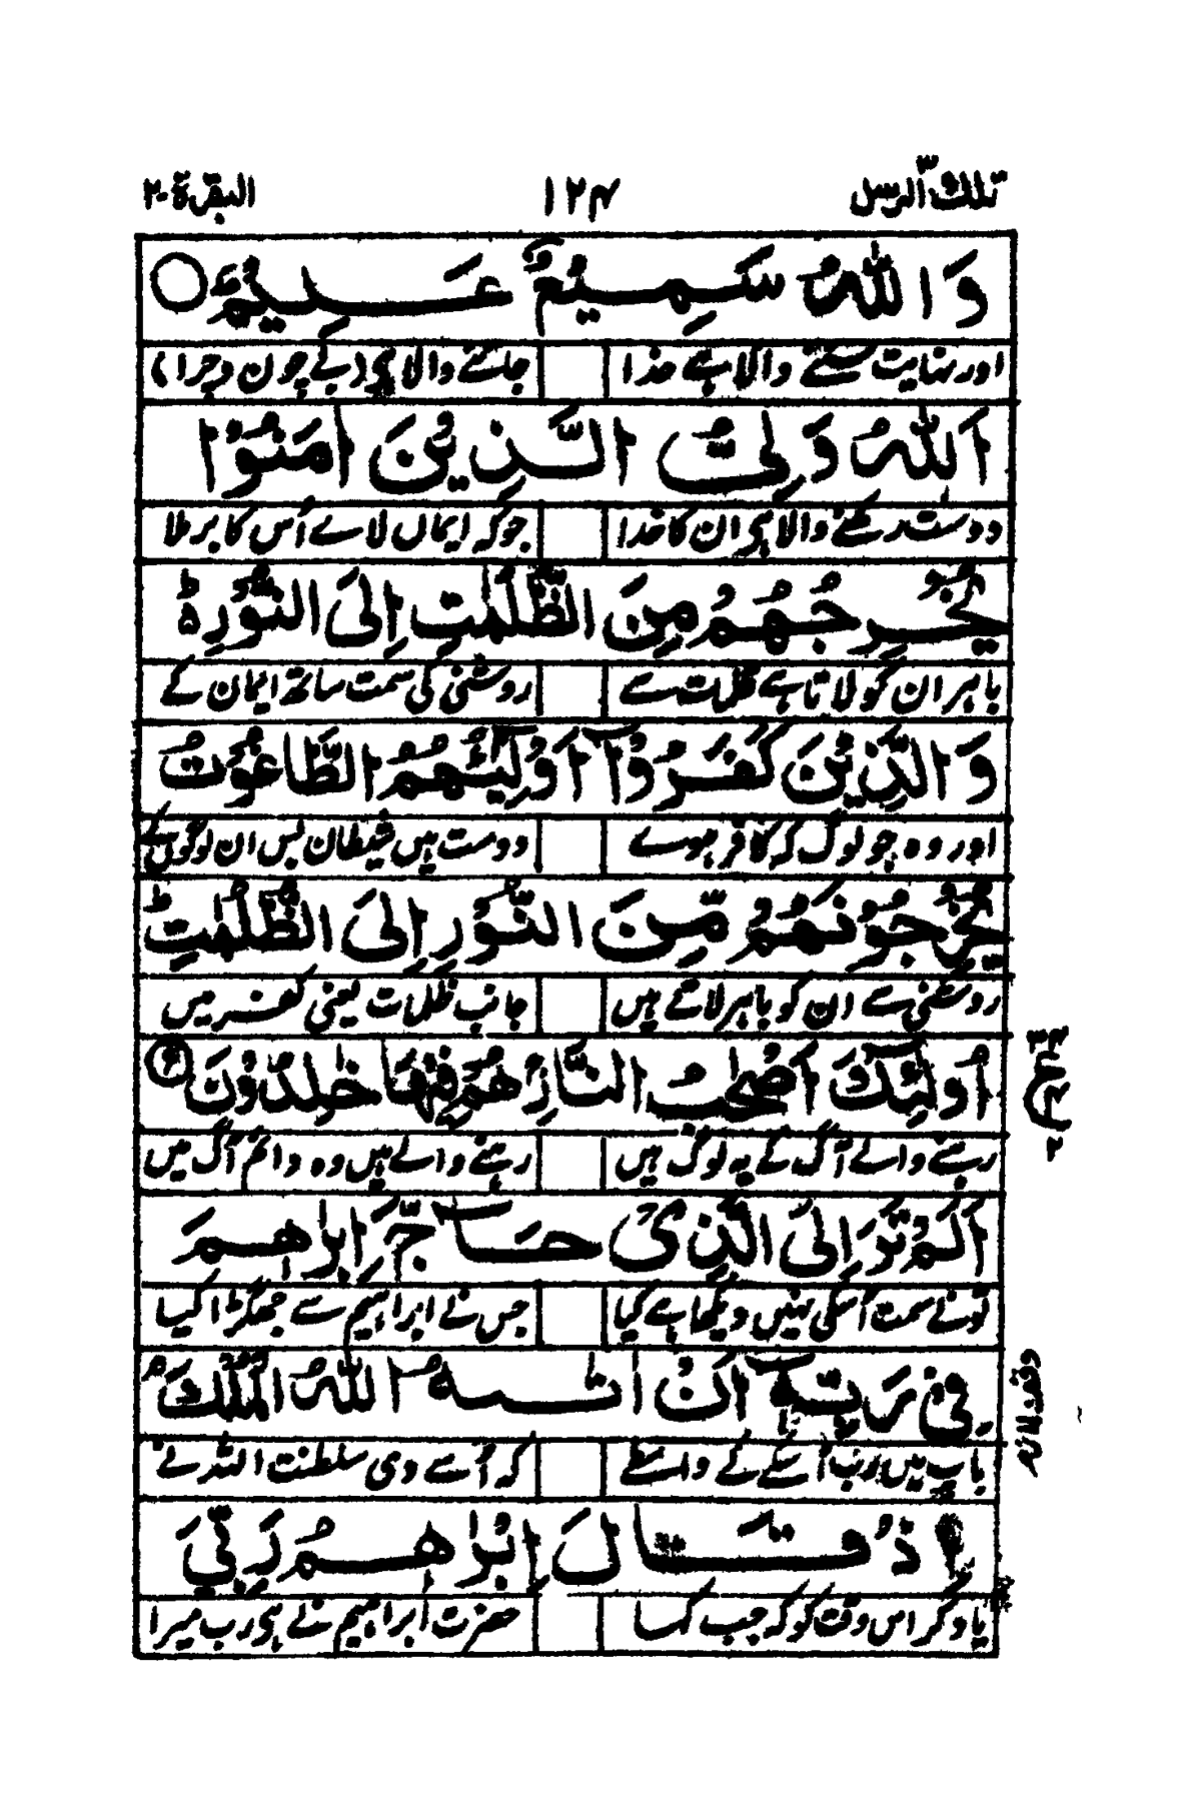 تلك الرسل ٣ ۱۲۴ البقرة ٢٠
وَاللّٰهُ سَمِيْعٌ عَلِيْمٌ ○
اور نہایت سننے والا ہے خدا جاننے والا ہی (بے چون و چرا)
اَللّٰهُ وَلِىُّ الَّذِيْنَ اٰمَنُوْا
دوست رکھنے والا ہی ان کا خدا جو کہ ایماں لاے اُس کا برملا
يُخْرِجُهُمْ مِنَ الظُّلُمٰتِ اِلَى النُّوْرِ ؕ
باہر ان کو لاتا ہے ظلمت سے روشنی کی سمت ساتھ ایمان کے
وَالَّذِيْنَ كَفَرُوْٓا اَوْلِيٰٓئُهُمُ الطَّاغُوْتُ
اور وہ جو لوگ کہ کافر ہوے دوست ہیں شیطان بس ان لوگوں کے
يُخْرِجُوْنَهُمْ مِّنَ النُّوْرِ اِلَى الظُّلُمٰتِ ؕ
روشنی سے ان کو باہر لاتے ہیں جانب ظلمات یعنی کفر میں
اُولٰٓئِكَ اَصْحٰبُ النَّارِ هُمْ فِيْهَا خٰلِدُوْنَ
رہنے والے آگ کے یہ لوگ ہیں رہنے والے ہیں وہ دائم آگ میں
اَلَمْ تَرَ اِلَى الَّذِىْ حَآجَّ اِبْرٰهٖمَ
تونے سمت اُسکی نہیں دیکھا ہے کیا جس نے ابراہیم سے جھگڑا کیا
فِىْ رَبِّهٖٓ اَنْ اٰتٰىهُ اللّٰهُ الْمُلْكَ ۘ
باب میں رب اُسکے کے واسطے کہ اُسے دی سلطنت اللہ نے
اِذْ قَالَ اِبْرٰهٖمُ رَبِّىَ
یاد کر اس وقت کو کہ جب کہا حضرت ابراہیم نے ہی رب میرا